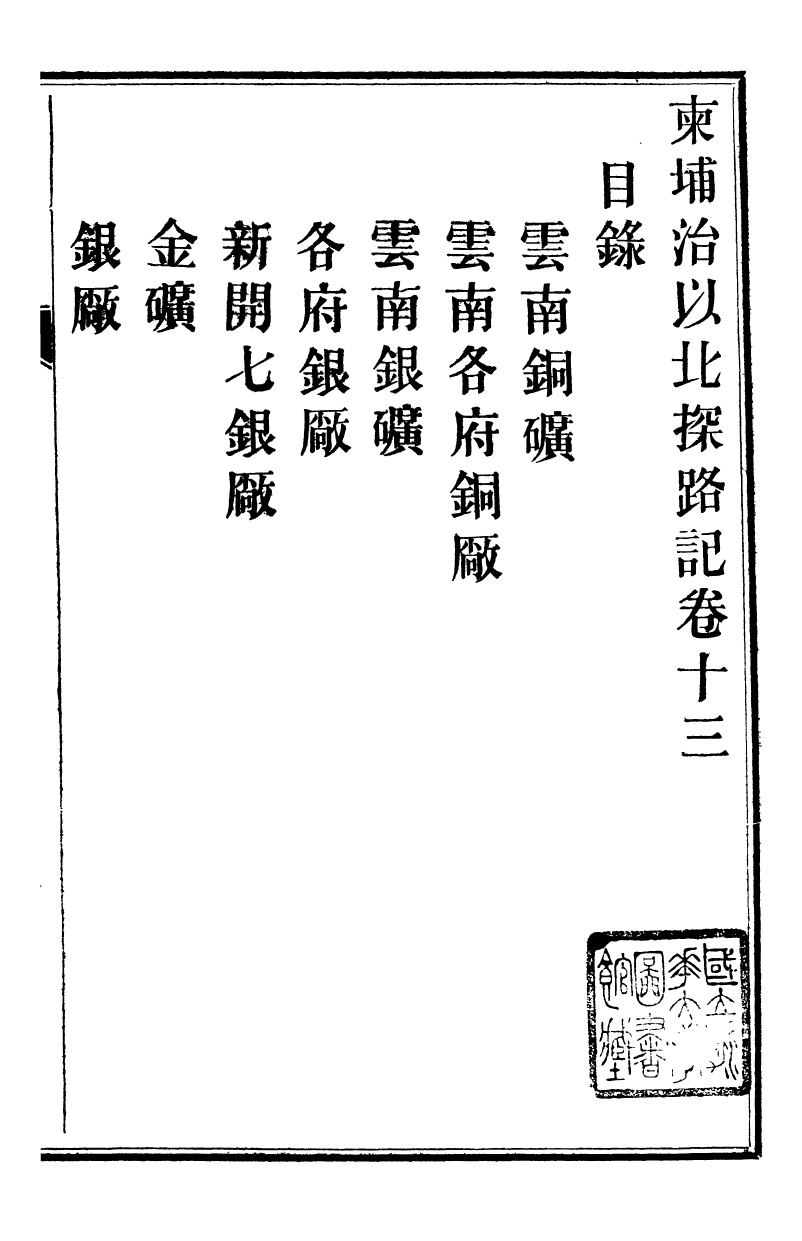 柬埔治以北探路記卷十三
目錄
雲南銅礦
雲南各府銅厰
雲南銀礦
各府銀厰
新開七銀厰
金礦
銀厰
圖書
館藏